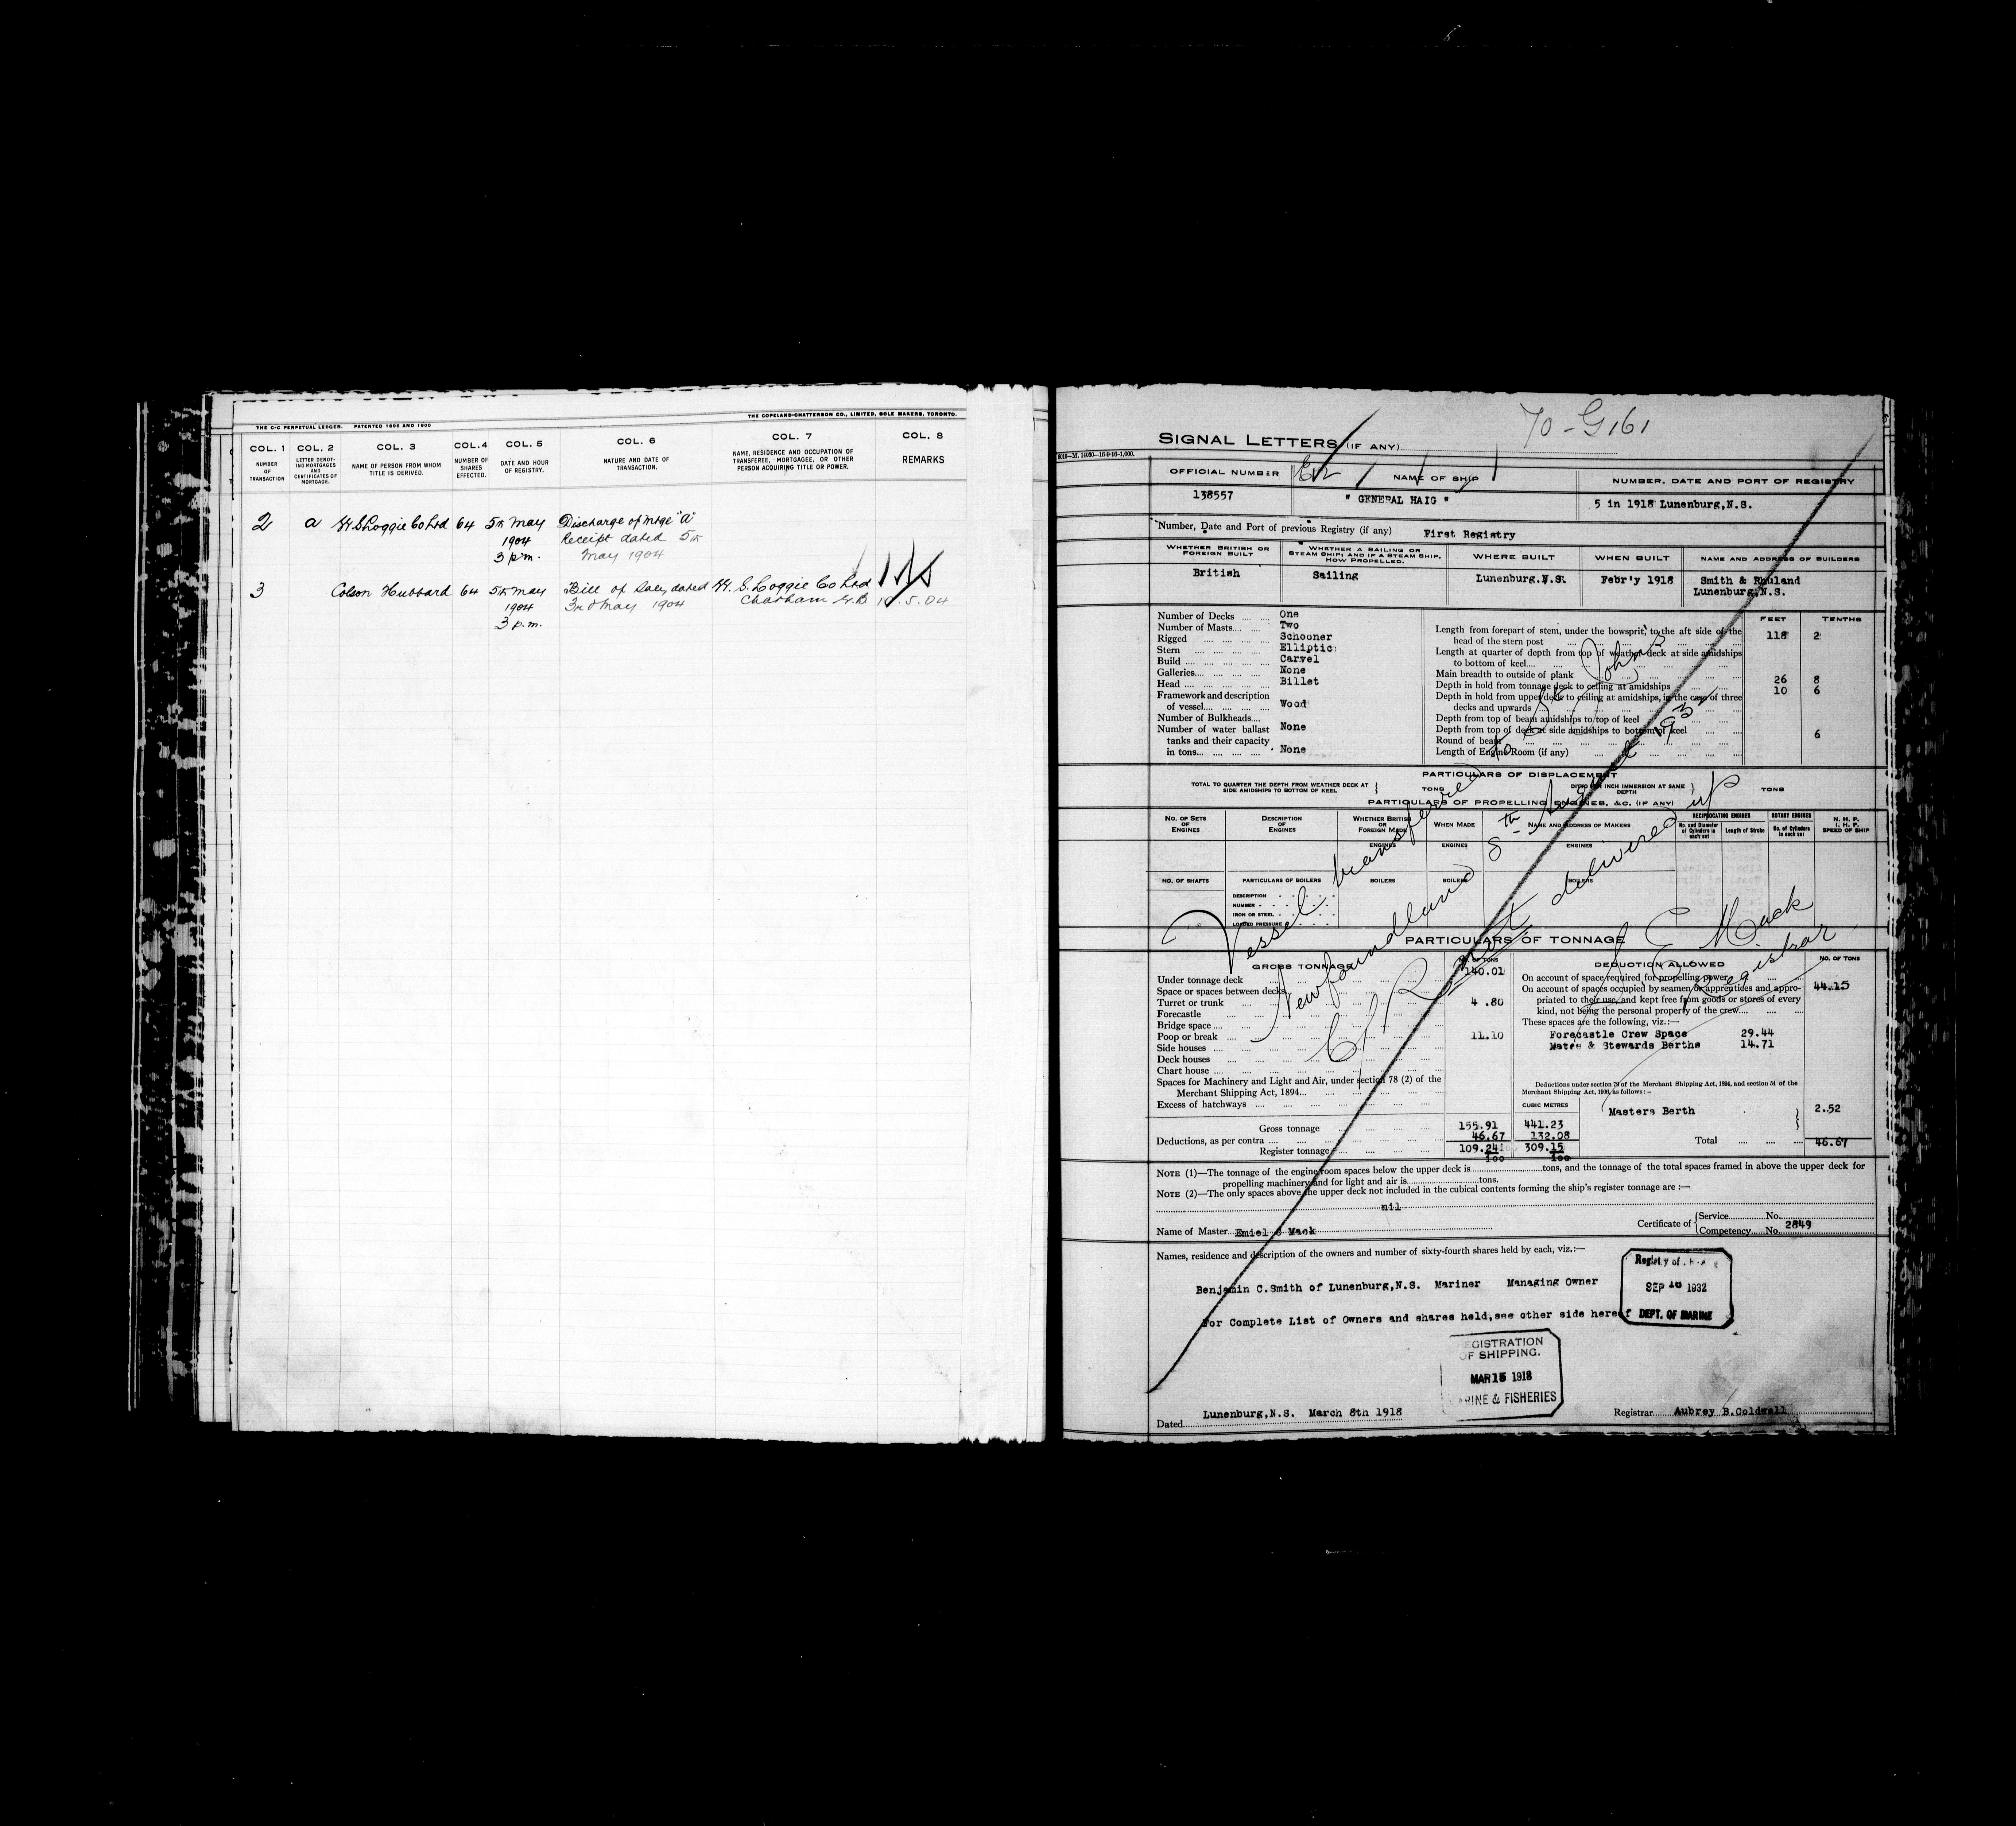 THE C-C PERPETUAL LEDGER. PATENTED 1896 AND 1900
THE COPELAND-CHATTERSON CO., LIMITED, SOLE MAKERS, TORONTO.
COL. 1 COL. 2 COL. 3 COL. 4 COL. 5 COL. 6 COL. 7 COL. 8
NUMBER OF TRANSACTION
LETTER DENOTING MORTGAGES AND CERTIFICATES OF MORTGAGE.
NAME OF PERSON FROM WHOM TITLE IS DERIVED.
NUMBER OF SHARES EFFECTED.
DATE AND HOUR OF REGISTRY.
NATURE AND DATE OF TRANSACTION.
NAME, RESIDENCE AND OCCUPATION OF TRANSFEREE, MORTGAGEE, OR OTHER PERSON ACQUIRING TITLE OR POWER.
REMARKS
2 a W. S. Loggie Co Ltd 64 5th May Discharge of Mtge "A"
1904 Receipt dated 5th
3 p.m. May 1904
3 Colson Hubbard 64 5th May Bill of Sale, dated W. S. Loggie Co Ltd
1904 3rd May 1904 Chatham N.B. 10.5.04
3 p.m.
70-G161
SIGNAL LETTERS (IF ANY)
OFFICIAL NUMBER NAME OF SHIP NUMBER, DATE AND PORT OF REGISTRY
138557 " GENERAL HAIG " 5 in 1918 Lunenburg,N.S.
Number, Date and Port of previous Registry (if any) First Registry
WHETHER BRITISH OR FOREIGN BUILT
WHETHER A SAILING OR STEAM SHIP; AND IF A STEAM SHIP, HOW PROPELLED.
WHERE BUILT
WHEN BUILT
NAME AND ADDRESS OF BUILDERS
British Sailing Lunenburg.N.S. Febr'y 1918 Smith & Rhuland
Lunenburg,N.S.
FEET TENTHS
Number of Decks One
Number of Masts Two
Rigged Schooner
Stern Elliptic
Build Carvel
Galleries None
Head Billet
Framework and description of vessel Wood
Number of Bulkheads None
Number of water ballast tanks and their capacity in tons None
Length from forepart of stem, under the bowsprit, to the aft side of the head of the stern post 118 2
Length at quarter of depth from top of weather deck at side amidships to bottom of keel
Main breadth to outside of plank 26 8
Depth in hold from tonnage deck to ceiling at amidships 10 6
Depth in hold from upper deck to ceiling at amidships, in the case of three decks and upwards
Depth from top of beam amidships to top of keel
Depth from top of deck at side amidships to bottom of keel
Round of beam 6
Length of Engine Room (if any)
PARTICULARS OF DISPLACEMENT
TOTAL TO QUARTER THE DEPTH FROM WEATHER DECK AT SIDE AMIDSHIPS TO BOTTOM OF KEEL TONS
DITTO PER INCH IMMERSION AT SAME DEPTH TONS
PARTICULARS OF PROPELLING ENGINES, &C. (IF ANY)
NO. OF SETS OF ENGINES
DESCRIPTION OF ENGINES
WHETHER BRITISH OR FOREIGN MADE
WHEN MADE
NAME AND ADDRESS OF MAKERS
RECIPROCATING ENGINES
No. and Diameter of Cylinders in each set
Length of Stroke
ROTARY ENGINES
No. of Cylinders in each set
N. H. P.
I. H. P.
SPEED OF SHIP
ENGINES ENGINES ENGINES
NO. OF SHAFTS PARTICULARS OF BOILERS BOILERS BOILERS BOILERS
DESCRIPTION
NUMBER
IRON OR STEEL
LOADED PRESSURE
Vessel transferred to St. Johns
Newfoundland 8th August 1932
C/R not delivered up
L E Mack
Registrar
PARTICULARS OF TONNAGE
GROSS TONNAGE NO. OF TONS
Under tonnage deck 140.01
Space or spaces between decks
Turret or trunk 4 .80
Forecastle
Bridge space
Poop or break 11.10
Side houses
Deck houses
Chart house
Spaces for Machinery and Light and Air, under section 78 (2) of the Merchant Shipping Act, 1894
Excess of hatchways
CUBIC METRES
Gross tonnage 155.91 441.23
Deductions, as per contra 46.67 132.08
Register tonnage 109.24 309.15
100 100
DEDUCTION ALLOWED NO. OF TONS
On account of space required for propelling power
On account of spaces occupied by seamen or apprentices and appropriated to their use, and kept free from goods or stores of every kind, not being the personal property of the crew 44.15
These spaces are the following, viz.:—
Forecastle Crew Space 29.44
Mates & Stewards Berths 14.71
Deductions under section 79 of the Merchant Shipping Act, 1894, and section 54 of the Merchant Shipping Act, 1906, as follows:—
Masters Berth 2.52
Total 46.67
NOTE (1)—The tonnage of the engine room spaces below the upper deck is tons, and the tonnage of the total spaces framed in above the upper deck for
propelling machinery and for light and air is tons.
NOTE (2)—The only spaces above the upper deck not included in the cubical contents forming the ship's register tonnage are :—
nil
Name of Master Emiel C Mack
Certificate of Service No.
Competency No. 2849
Names, residence and description of the owners and number of sixty-fourth shares held by each, viz.:—
Benjamin C.Smith of Lunenburg,N.S. Mariner Managing Owner
For Complete List of Owners and shares held,see other side hereof
Registry of
SEP 10 1932
DEPT. OF MARINE
REGISTRATION
OF SHIPPING.
MAR 15 1918
MARINE & FISHERIES
Dated Lunenburg,N.S. March 8th 1918
Registrar Aubrey B.Coldwell